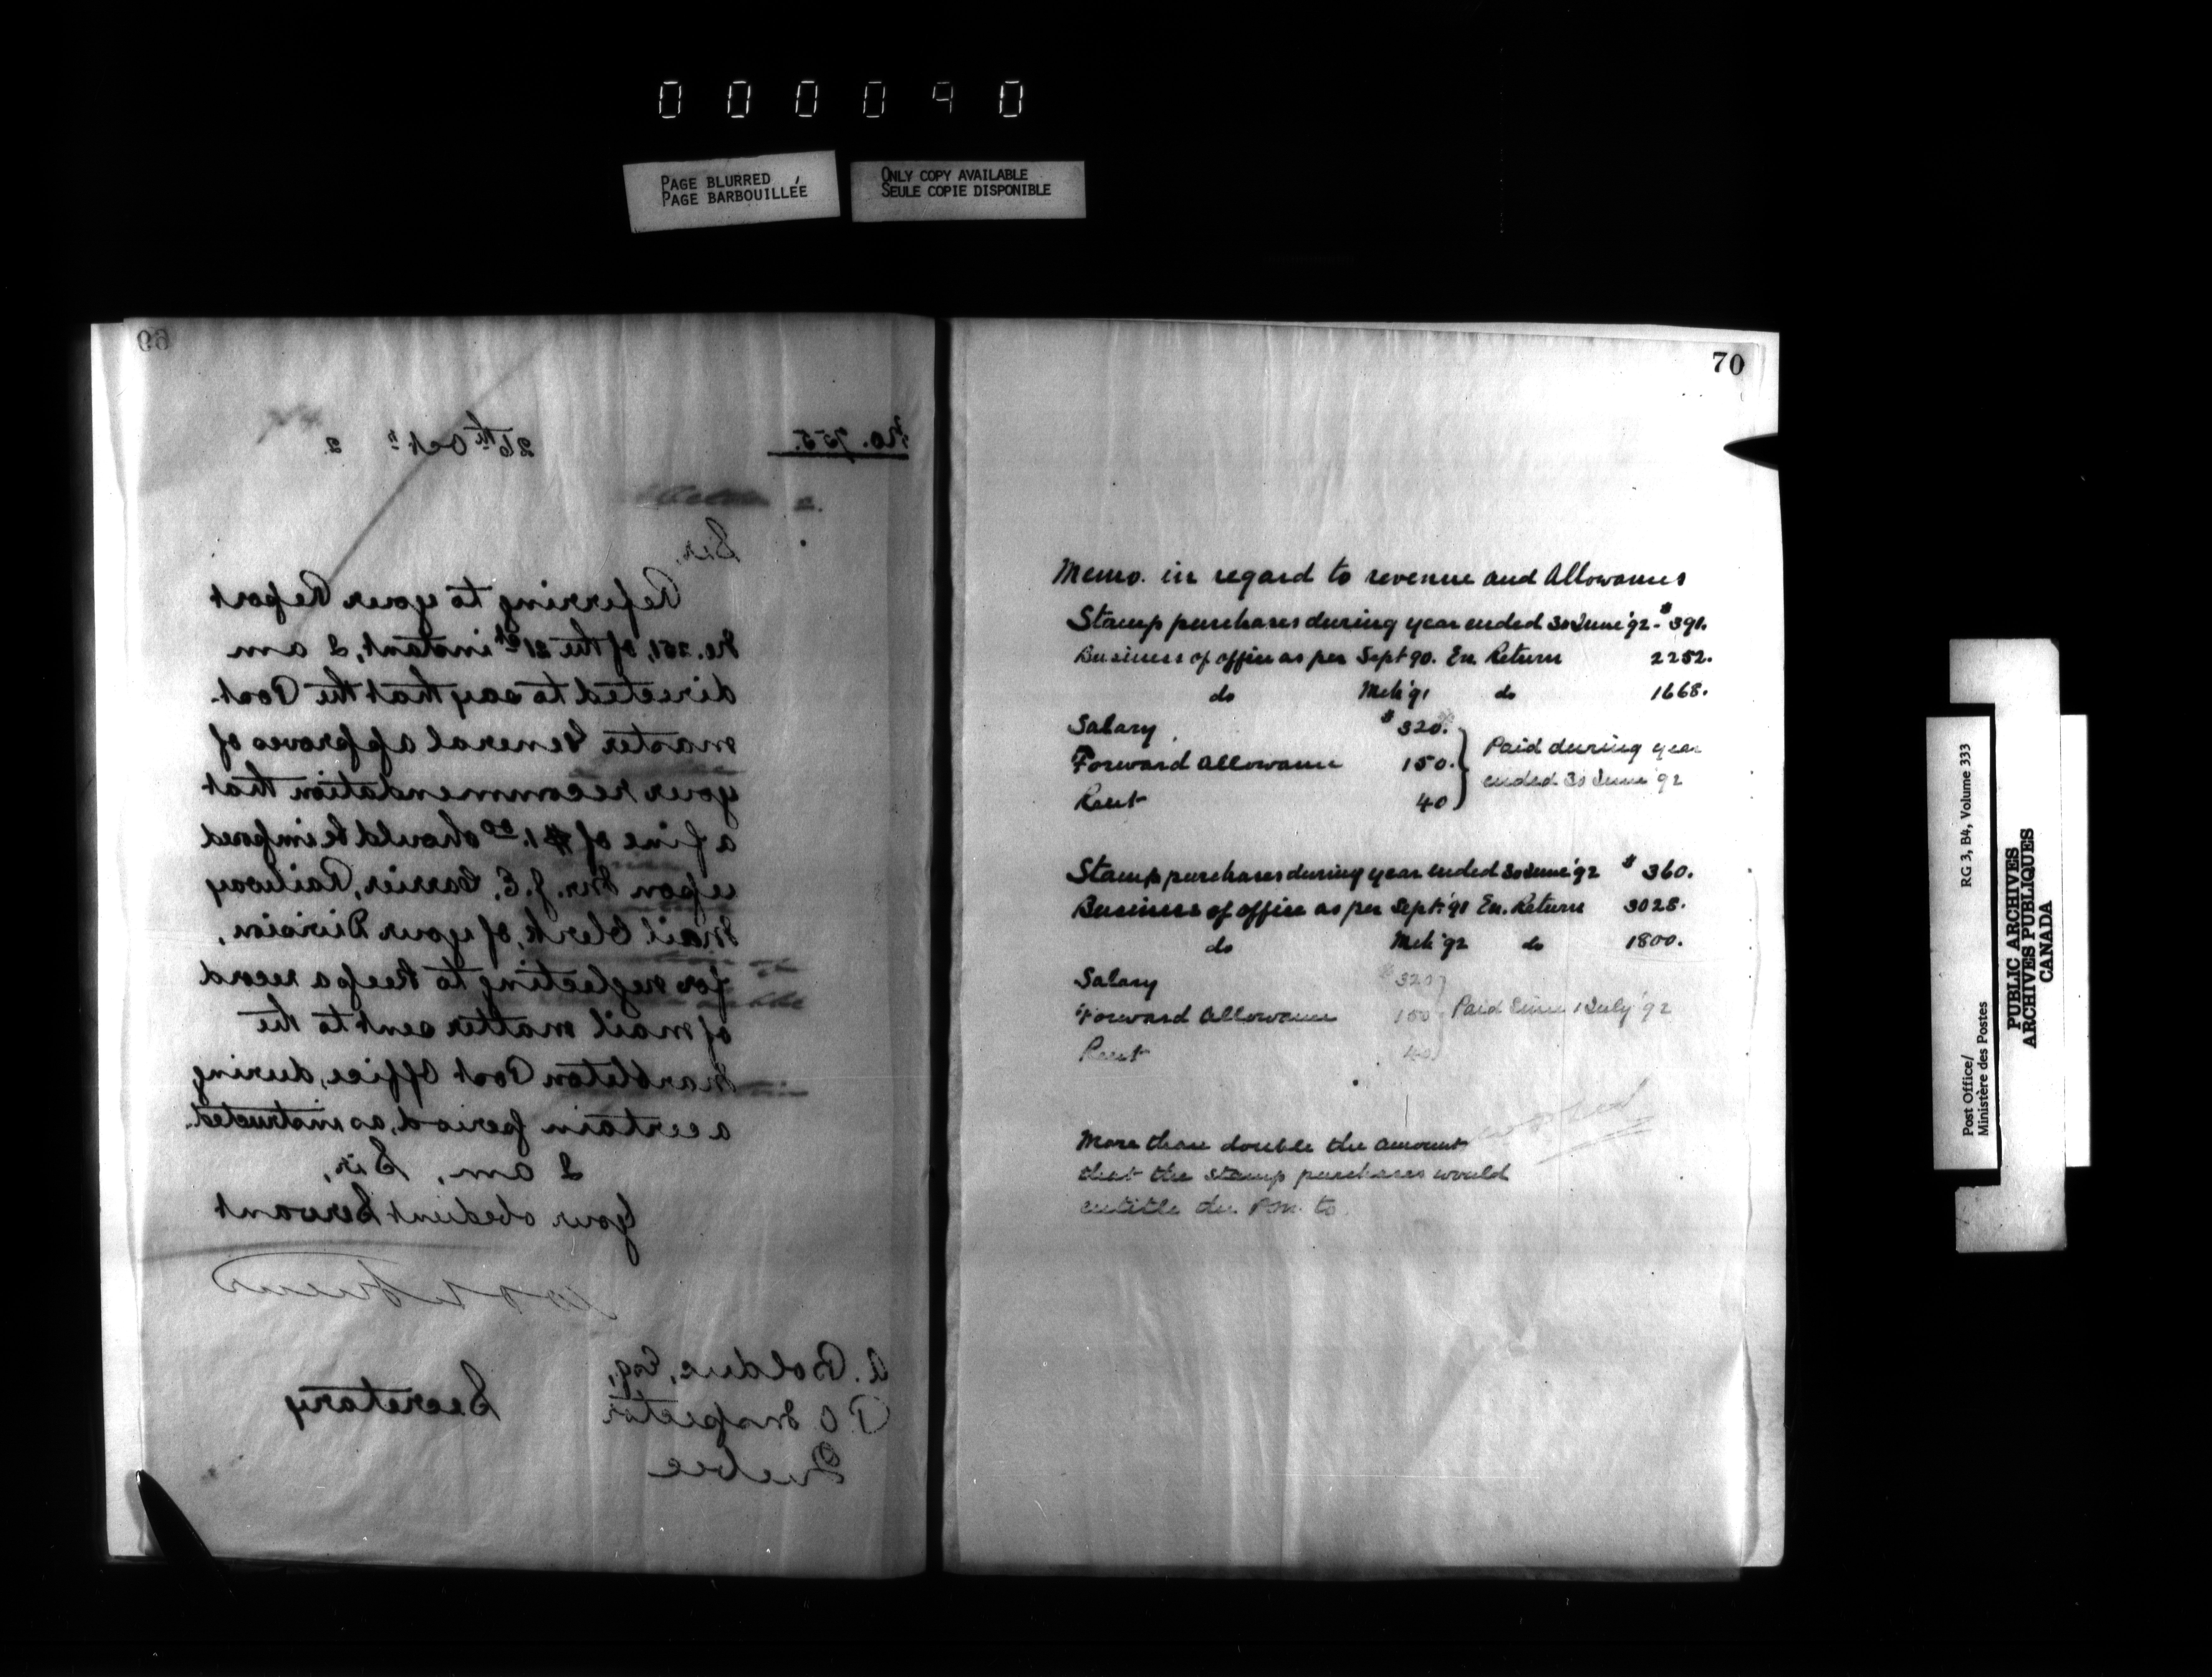 000090
PAGE BLURRED
PAGE BARBOUILLÉE
ONLY COPY AVAILABLE
SEULE COPIE DISPONIBLE
69
No. 755.
26th Octr 2
Sir,
Referring to your Report
No. 251, of the 21st instant, I am
directed to say that the Post-
master General approves of
your recommendation that
a fine of $1.00 should be imposed
upon Mr. J. E. Carrier, Railway
Mail Clerk, of your Division,
for neglecting to keep a record
of mail matter sent to the
Marbleton Post Office, during
a certain period, as instructed.
I am, Sir,
Your obedient Servant
Secretary
A. Bolduc, Esq,
P O Inspector
Quebec
70
Memo. in regard to revenue and Allowances
Stamp purchases during year ended 30 June '92 - $391.
Business of office as per Sept 90. En. Return 2252.
do Mch '91 do 1668.
Salary $320.
Forward Allowance 150.
Rent 40
Paid during year
ended 30 June '92
Stamp purchases during year ended 30 June '92 $360.
Business of office as per Sept. '91 En. Return 3028.
do Mch '92 do 1800.
Salary $320
Forward Allowance 150
Rent 40
Paid since 1 July '92
More than double the amount
that the stamp purchases would
entitle the P.M. to.
Post Office/
Ministère des Postes
RG 3, B4, Volume 333
PUBLIC ARCHIVES
ARCHIVES PUBLIQUES
CANADA